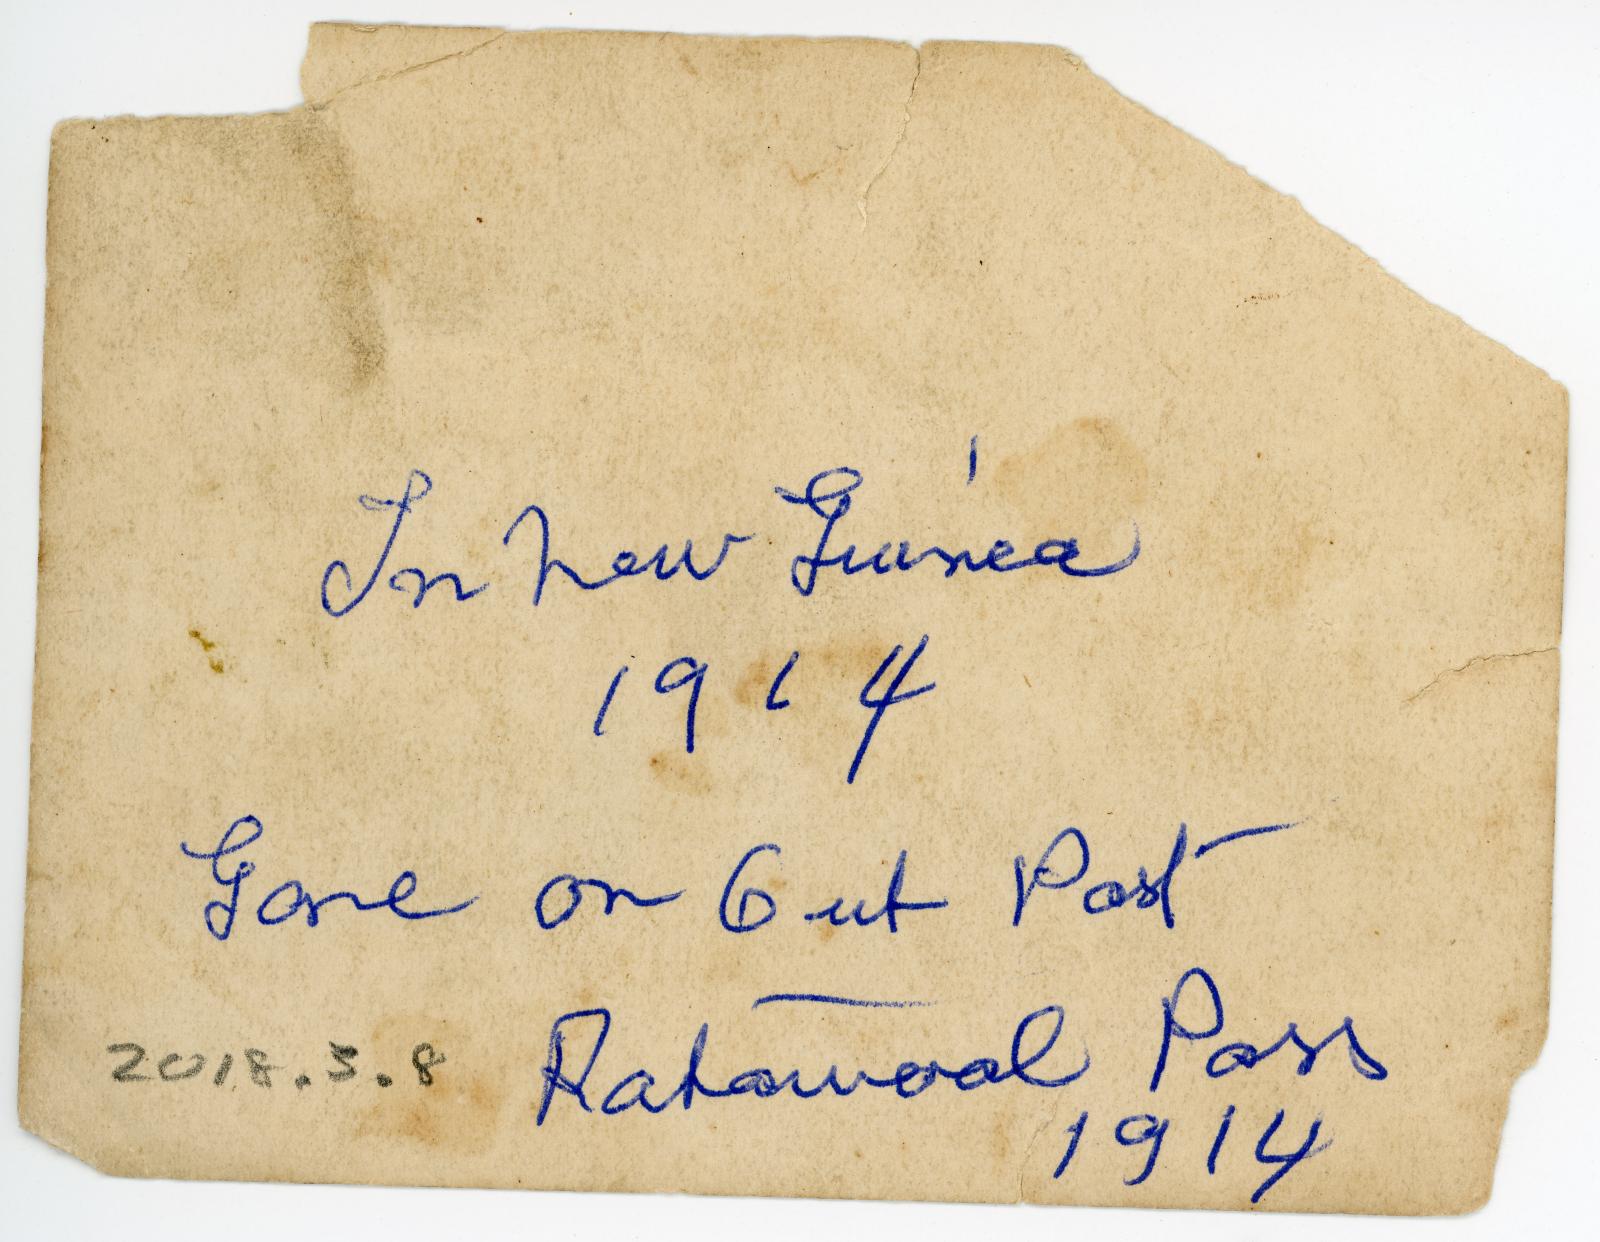 In New Guinea
1914
Gone on Out Post
Ratawoal Pass
1914
2018.3.8